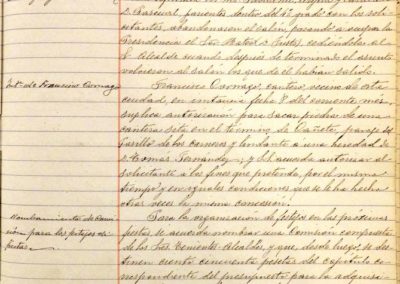 D. Pascual, parientes dentro del 4º grado con los soli-
citantes, abandonaron el salón pasando a ocupar la
Presidencia el Sor. Mateo y Juste, cediéndola al
Sr Alcalde cuando después de terminado el asunto
volvieron al salón los que de él habían salido.
Inst. de Francisco Cornago
Francisco Cornago, cantero, vecino de esta
ciudad, en instancia fecha 8 del corriente mes
suplica autorización para sacar piedra de una
cantera sita en el término de paraje del
de los y lindante a una heredad de
D. Tomás Fernandez, y S.S. acuerda autorizar al
solicitante a los fines que pretende, por el mismo
tiempo y en iguales condiciones que se le ha hecho
otras veces la misma concesión.
Nombramiento de Comi-
sión para los festejos de
Para la organización de festejos en las próximas
fiestas se acuerda nombrar una Comisión compuesta
de los Sres Tenientes Alcaldes, y que, desde luego, se des-
tinen ciento cincuenta pesetas del capítulo co-
rrespondiente del presupuesto para la adquisi-